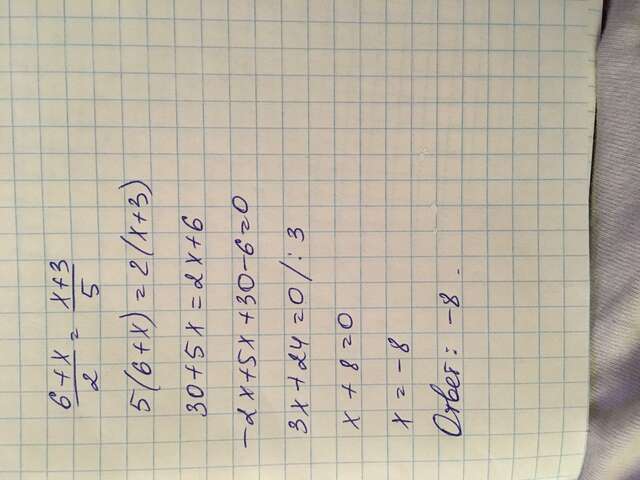 6+x/2 = x+3/5
5(6+x)=2(x+3)
30+5x=2x+6
-2x+5x+30-6=0
3x+24=0/:3
x+8=0
x=-8
Ответ: -8.